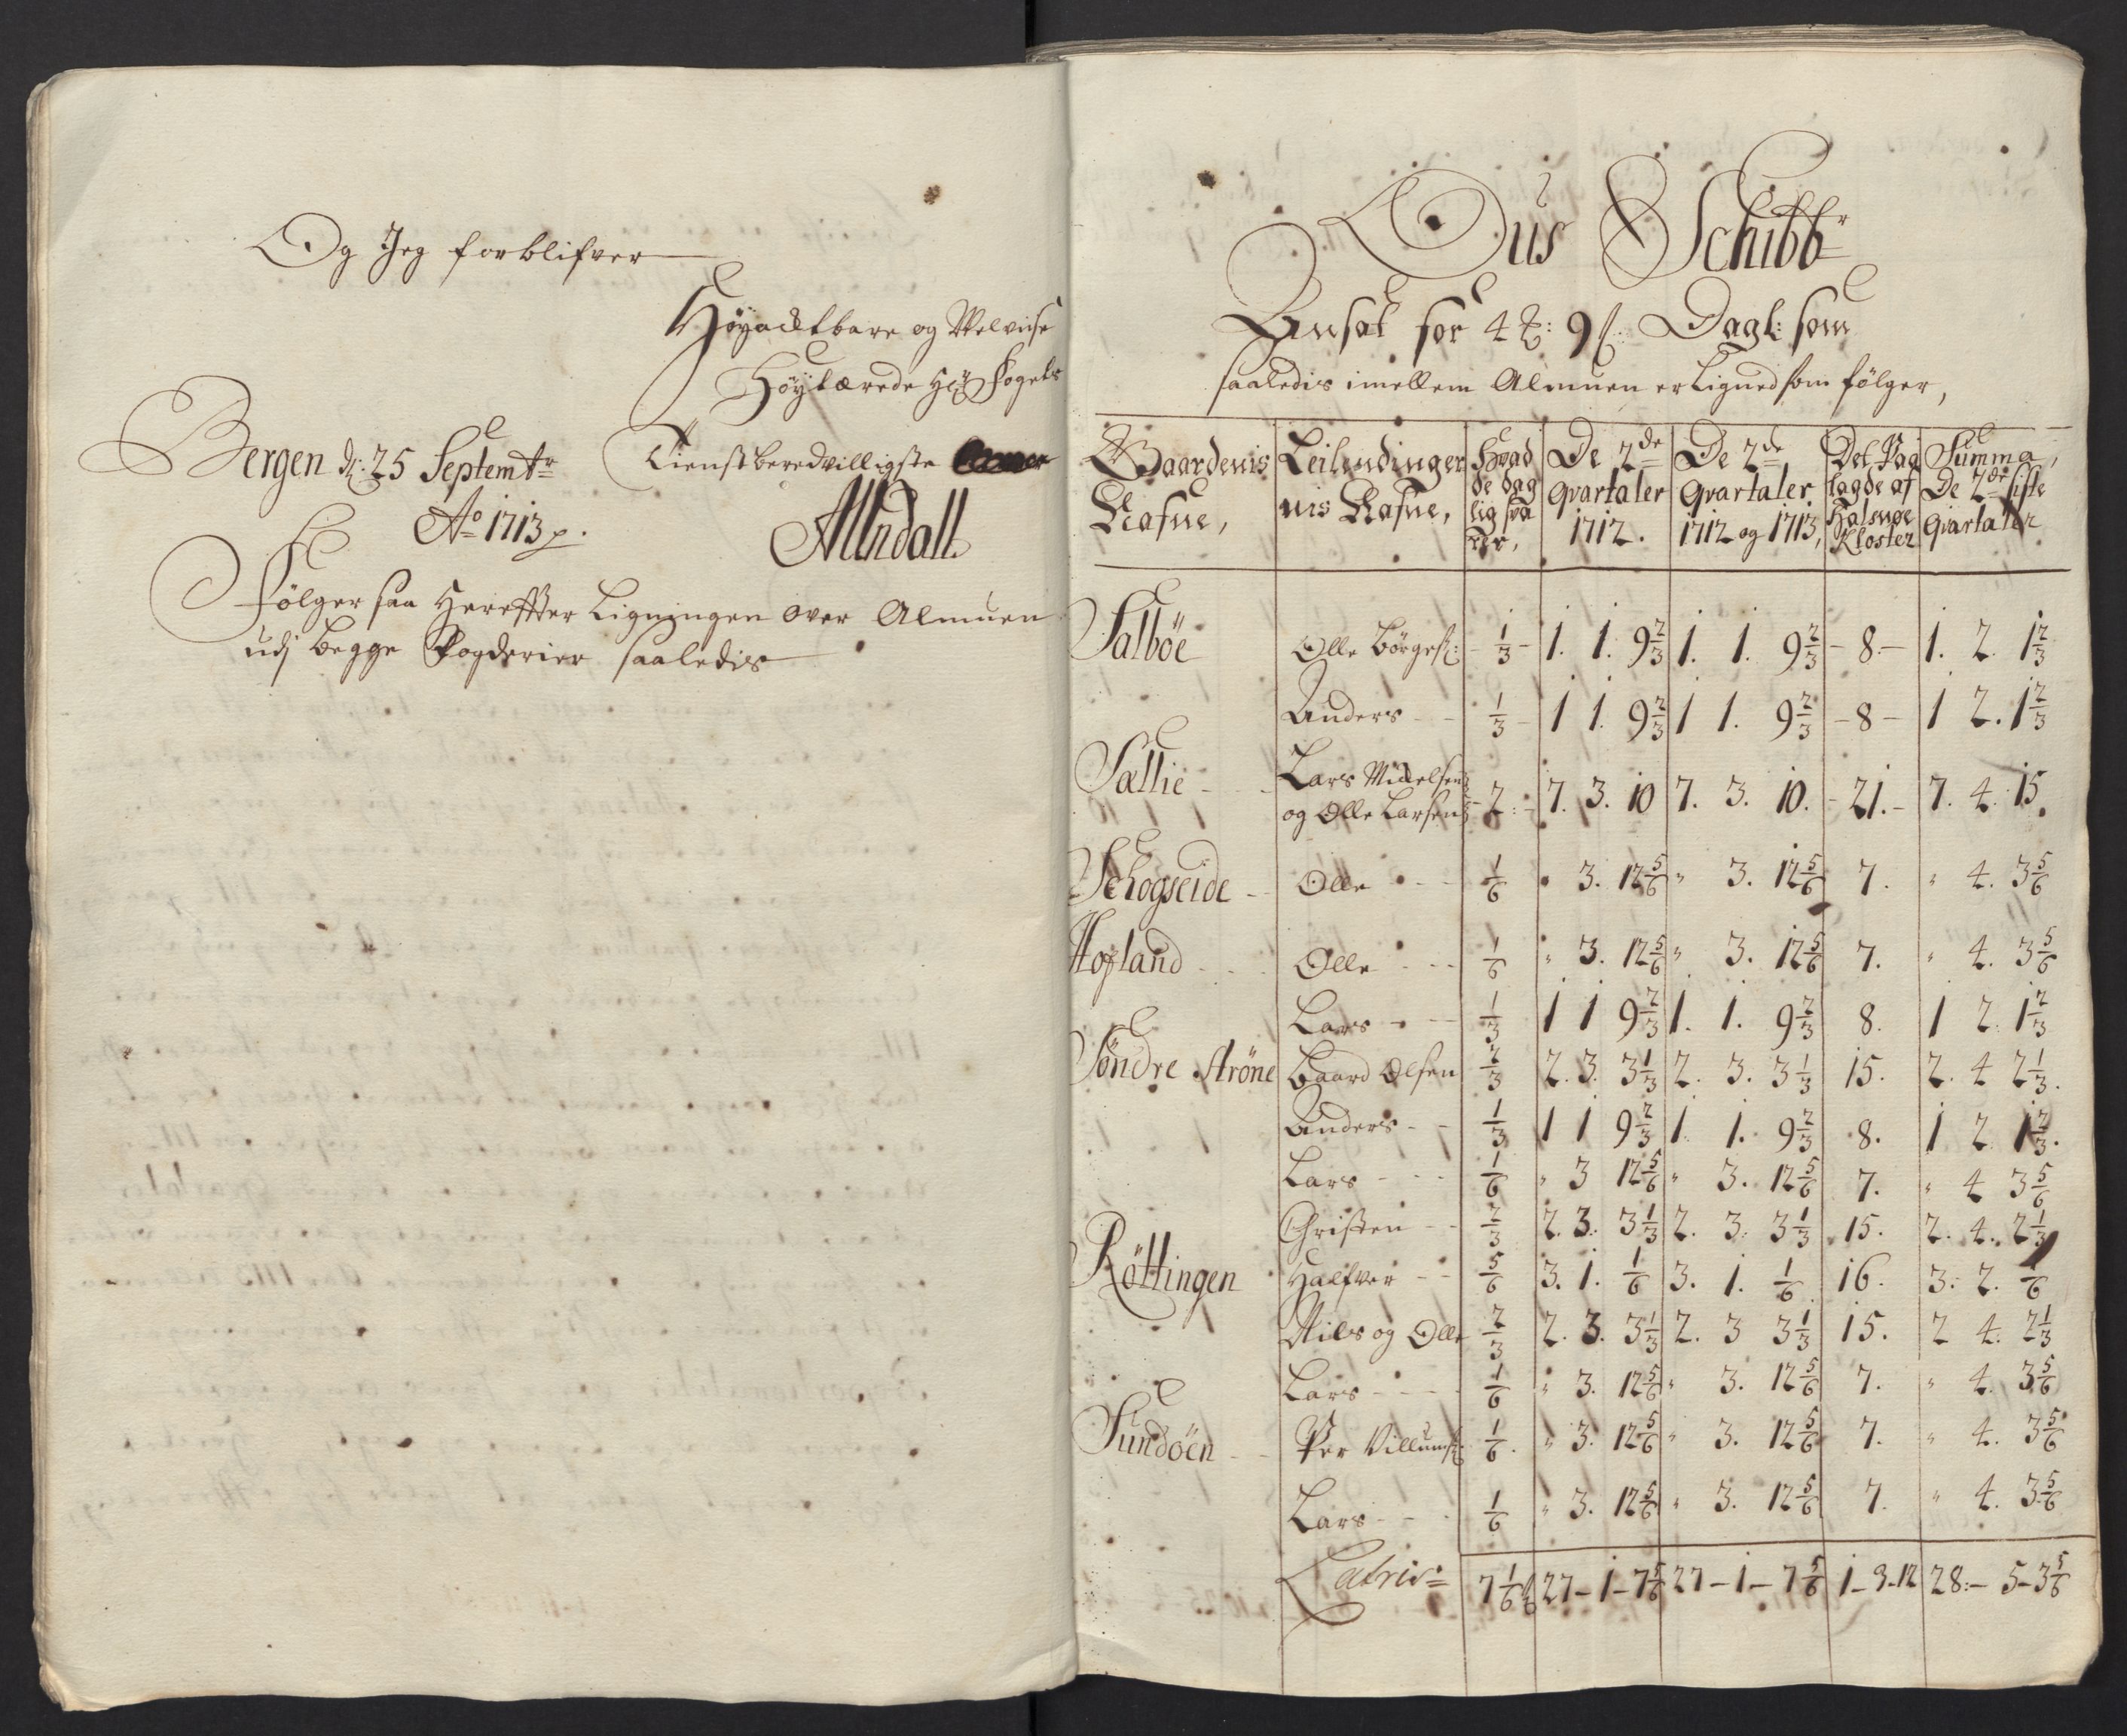 Og Jeg forblifver
Höyacktbare og Velviise
Höylærede Hr Fogets
Bergen d: 25 Septembr
Tienstberedvilligste
Ao 1713
Fölger saa Hereffter Ligningen over Almuen
udj begge Fogderier saaledis
Ous Schibbr
Ansat for 4 : 9 ß: Dagl: som
saaledis imellem Almuen er Ligned som fölger,
Gaardenis Nafne, | Leilendingernis Nafne, | Hvad de daglig svarer, | De 2de Qvartaler 1712. | De 2de Qvartaler 1712 og 1713, | Det Paalagde af Halsnöe Kloster | Summa, De 2de siste Qvartaler
Salböe Olle Börges: 1/3 1. 1. 9 2/3 1. 1. 9 2/3 8. 1. 2. 1 2/3
Anders 1/3 1 1. 9 2/3 1 1. 9 2/3 8 1 2. 1 2/3
Sællie Lars Mickelsen
og Olle Larsen 2: 7. 3. 10 7. 3. 10. 21. 7. 4. 15.
Schogseide Olle 1/6 " 3. 12 5/6 " 3. 12 5/6 7. " 4. 3 5/6
Hofland Olle 1/6 " 3. 12 5/6 " 3. 12 5/6 7. " 4. 3 5/6
Lars 1/3 1 1 9 2/3 1. 1. 9 2/3 8. 1 2. 1 2/3
Söndre Ströne Baard Olsen 2/3 2. 3. 3 1/3 2. 3. 3 1/3 15. 2. 4 2 1/3.
Anders 1/3 1 1 9 2/3 1. 1. 9 2/3 8. 1 2 1 2/3.
Lars 1/6 " 3 12 5/6 " 3. 12 5/6 7. " 4 3 5/6
Christen 2/3 2. 3. 3 1/3 2. 3. 3 1/3 15. 2. 4. 2 1/3
Röttingen Halfver 5/6 3. 1. 1/6 3. 1. 1/6 16. 3. 2. 1/6
Nils og Olle 2/3 2. 3. 3 1/3 2. 3 3 1/3 15. 2 4. 2 1/3
Lars 1/6 " 3. 12 5/6 " 3. 12 5/6 7. " 4. 3 5/6
Sundöen Per Villums: 1/6. " 3. 12 5/6 " 3. 12 5/6 7. " 4. 3 5/6
Lars 1/6 " 3. 12 5/6 " 3. 12 5/6 7. " 4. 3 5/6
Latris 7 1/6 ß 27-1-7 5/6 27-1-7 5/6 1-3-12 28:-5-3 5/6